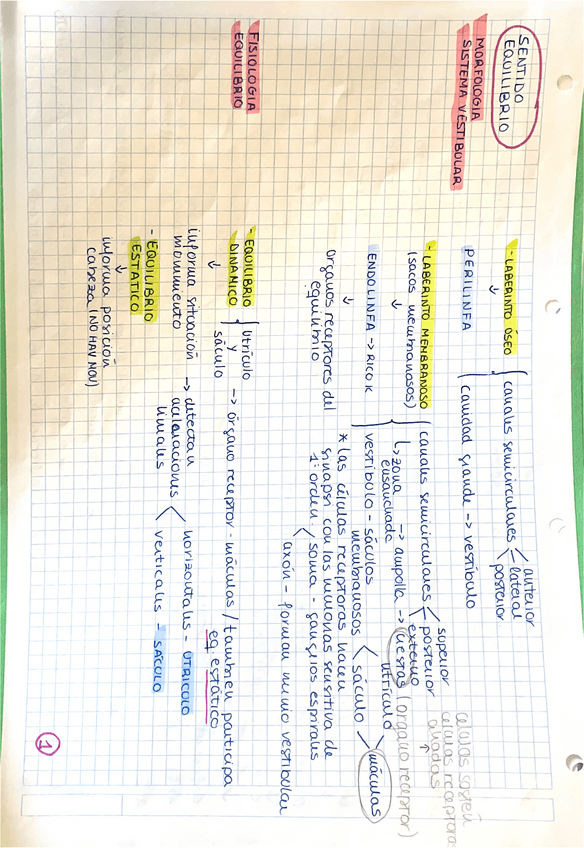 SENTIDO
EQUILIBRIO
MORFOLOGIA
SISTEMA VESTIBULAR
- LABERINTO ÓSEO { canales semicirculares < anterior
lateral
posterior
↓
PERILINFA cavidad grande → vestíbulo
- LABERINTO MEMBRANOSO { canales semicirculares < superior
posterior
externo
(sacos membranosos)
↳ zona → ampolla → crestas (órgano receptor)
ensanchada
células sostén
células receptoras
ciliadas
↓
ENDOLINFA → RICO K
vestíbulo - sáculos
membranosos < utrículo
sáculo > máculas
↓
Órganos receptores del
equilibrio
* las células receptoras hacen
sinapsi con las neuronas sensitiva de
1º orden / soma - ganglios espirales
axón - forman nervio vestibular
FISIOLOGIA
EQUILIBRIO
- EQUILIBRIO
DINÁMICO { utrículo
y
sáculo → órgano receptor - máculas / también participa
eq. estático
↓
informa situación
movimiento → detectan
aceleraciones
lineales < horizontales - UTRICULO
verticales - SÁCULO
- EQUILIBRIO
ESTATICO
↓
informa posición
cabeza (NO HAY MOV)
1